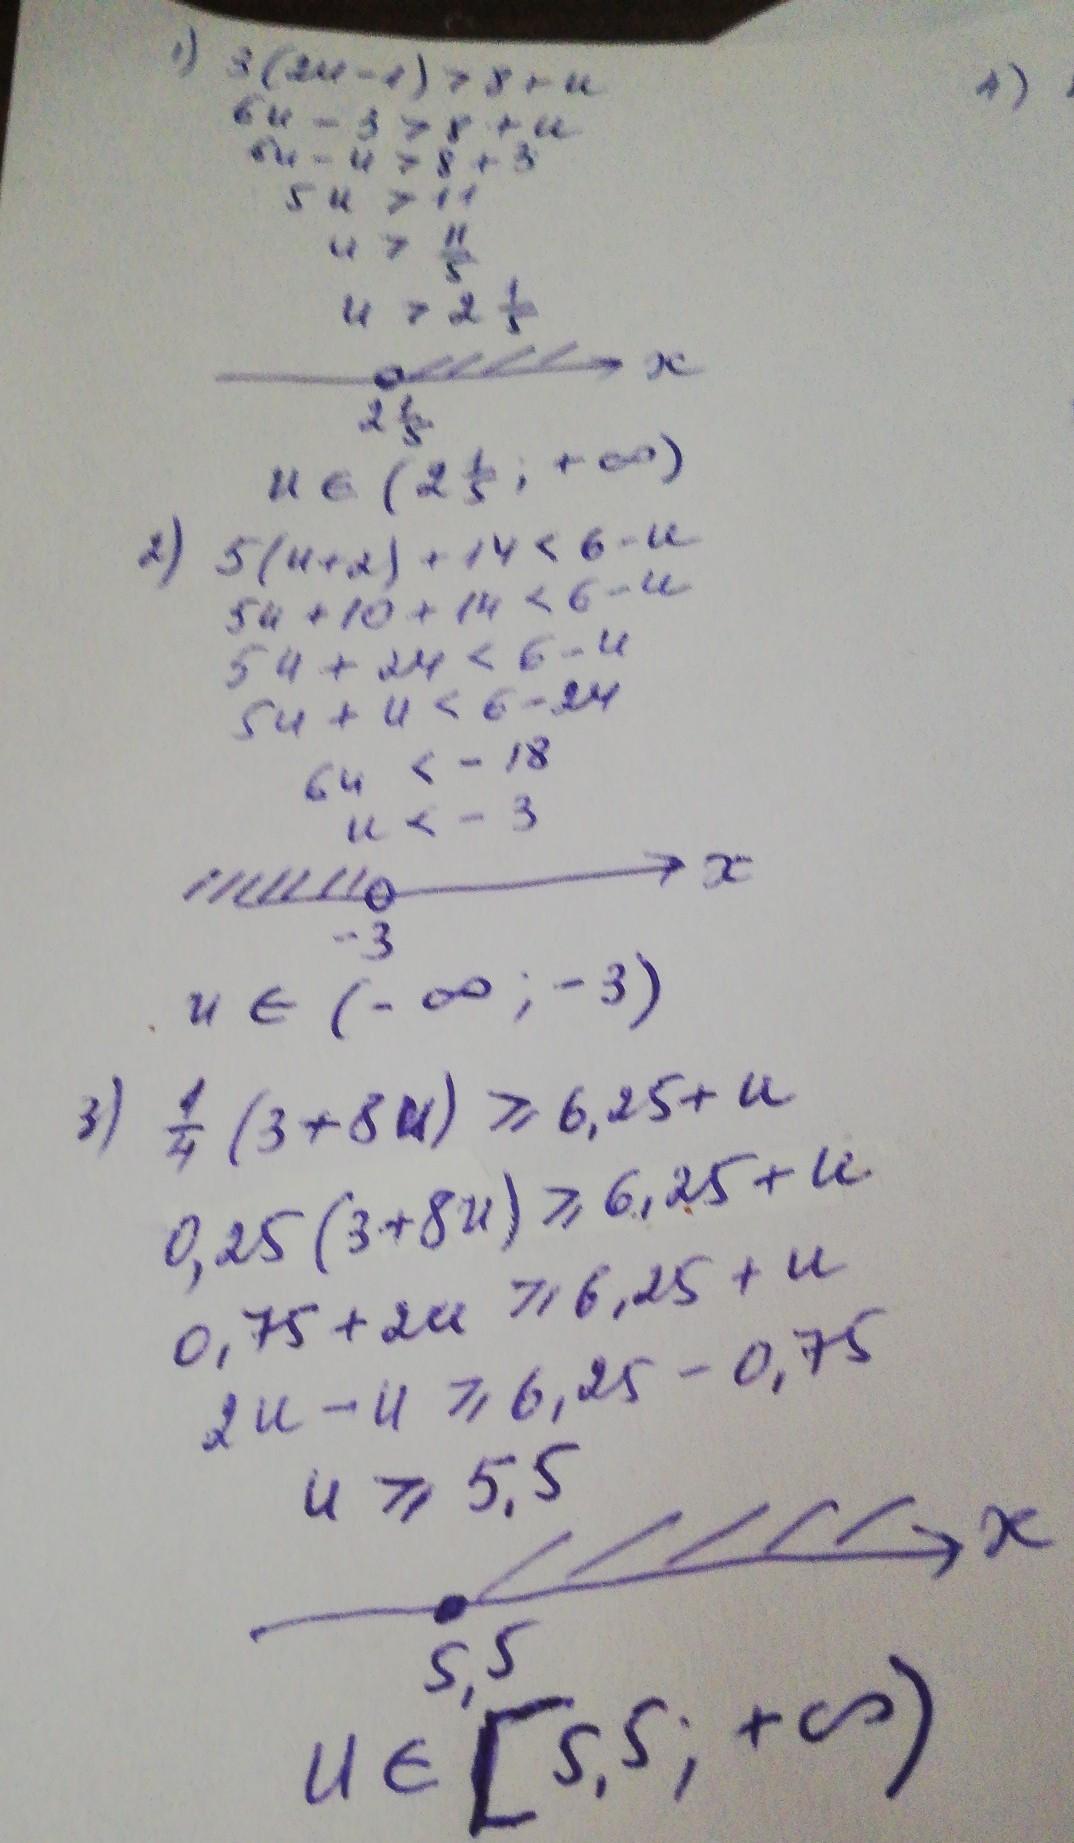 1) 3(2u-1) > 8 + u
6u - 3 > 8 + u
6u - u > 8 + 3
5u > 11
u > 11/5
u > 2 1/5
x
2 1/5
u ∈ (2 1/5; +∞)
2) 5(u+2) + 14 < 6 - u
5u + 10 + 14 < 6 - u
5u + 24 < 6 - u
5u + u < 6 - 24
6u < - 18
u < - 3
x
-3
u ∈ (-∞; -3)
3) 1/4 (3+8u) ⩾ 6,25 + u
0,25 (3+8u) ⩾ 6,25 + u
0,75 + 2u ⩾ 6,25 + u
2u - u ⩾ 6,25 - 0,75
u ⩾ 5,5
x
5,5
u ∈ [5,5; +∞)
4)